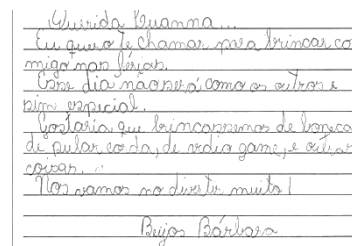 Querida Luanna...
Eu quero te chamar para brincar co
migo nas férias.
Esse dia não será como os outros e
sim especial.
Gostaria que brincassemos de boneca
de pular corda, de vidio game, e outras
coisas.
Nos vamos no divertir muito!
Beijos Bárbara